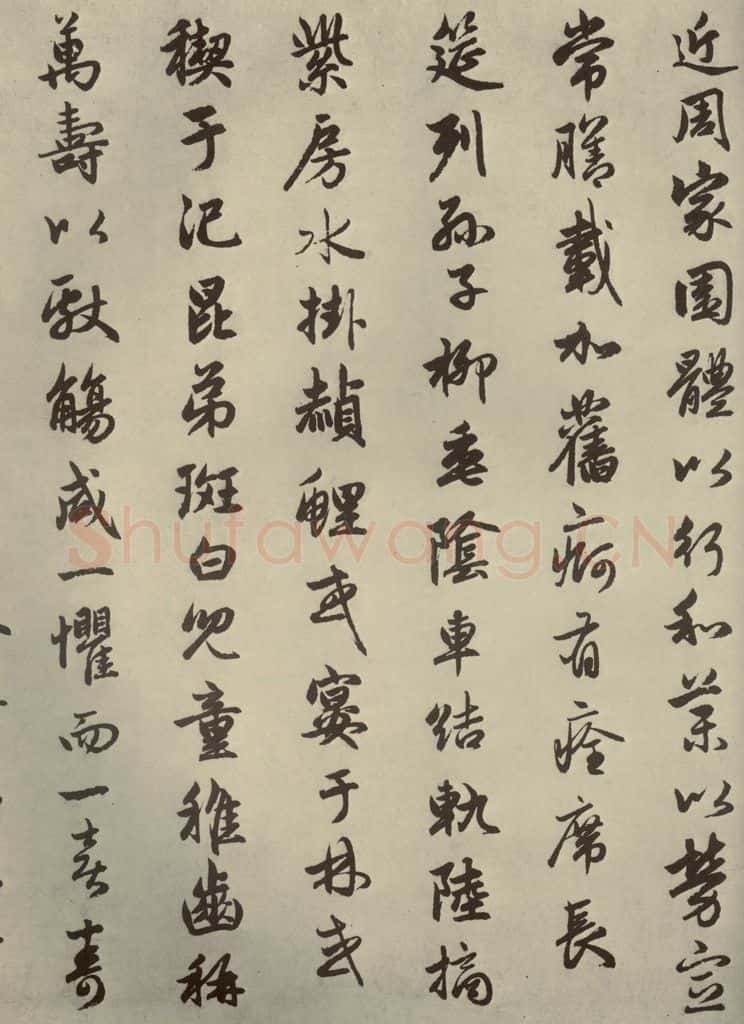 近周家園體以行和藥以勞宣
常膳載加舊痾有痊席長
筵列孫子柳垂陰車結軌陸摘
紫房水掛赬鯉或宴于林或
禊于汜昆弟斑白兒童稚齒稱
萬壽以獻觴咸一懼而一喜壽
Shufawang.CN